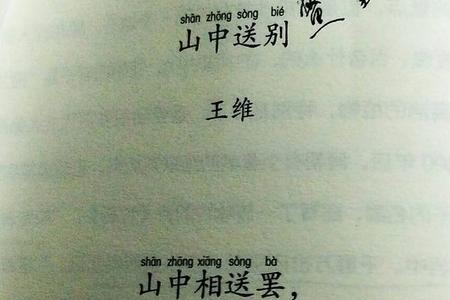 shān zhōng sòng bié
山中送别
王维
shān zhōng xiāng sòng bà
山中相送罢，